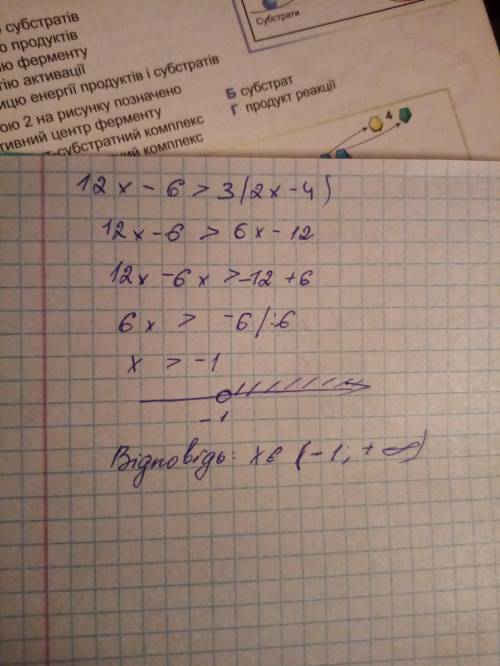 Субстрати
субстратів
о продуктів
ю ферменту
гію активації
ицю енергії продуктів і субстратів
ою 2 на рисунку позначено
тивний центр ферменту
т-субстратний комплекс
ний комплекс
Б субстрат
Г продукт реакції
4
12x - 6 > 3(2x - 4)
12x - 6 > 6x - 12
12x - 6x > -12 + 6
6x > -6 /:6
x > -1
-1
Відповідь: x є (-1; + ∞)